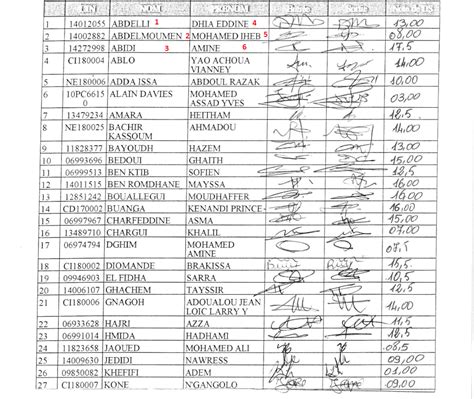 CIN NOM PRENOM
1 14012055 ABDELLI 1 DHIA EDDINE 4 13,00
2 14002882 ABDELMOUMEN 2 MOHAMED IHEB 5 08,00
3 14272998 ABIDI 3 AMINE 6 17,5
4 CI180004 ABLO YAO ACHOUA VIANNEY 14,00
5 NE180006 ADDA ISSA ABDOUL RAZAK 10,00
6 10PC66150 ALAIN DAVIES MOHAMED ASSAD YVES 03,00
7 13479234 AMARA HEITHAM 12,5
8 NE180025 BACHIR KASSOUM AHMADOU 14,00
9 11828377 BAYOUDH HAZEM 13,00
10 06993696 BEDOUI GHAITH 15,00
11 06999513 BEN KTIB SOFIEN 12,5
12 14011515 BEN ROMDHANE MAYSSA 16,00
13 12851242 BOUALLEGUI MOUDHAFFER 18,00
14 CD170002 BUANGA KENANDI PRINCE 16,00
15 06997967 CHARFEDDINE ASMA 15,00
16 13489710 CHARGUI KHALIL 07,00
17 06974794 DGHIM MOHAMED AMINE 07,5
18 CI180002 DIOMANDE BRAKISSA 13,5
19 09946903 EL FIDHA SARRA 10,5
20 14006107 GHACHEM TAYSSIR 12,5
21 CI180006 GNAGOH ADOUALOU JEAN LOIC LARRY Y 14,00
22 06933628 HAJRI AZZA 11,5
23 06991014 HMIDA HADHAMI 12,5
24 11823658 JAOUED MOHAMED ALI 08,5
25 14009630 JEDIDI NAWRESS 09,00
26 09850082 KHEFIFI ADEM 01,00
27 CI180007 KONE N'GANGOLO 09,00